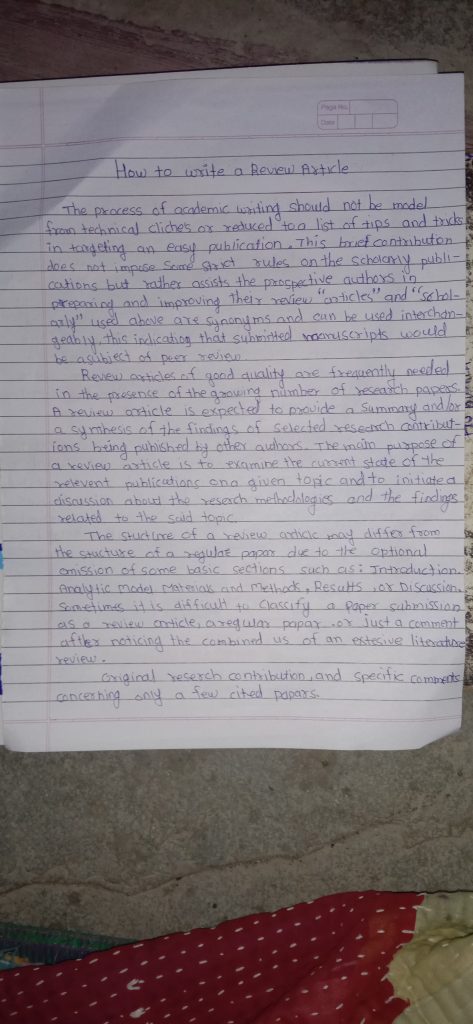 Page No.
Date
How to write a Review Article
The process of academic writing should not be model
from technical cliches or reduced to a list of tips and tricks
in targeting an easy publication. This brief contributon
does not impose some strict rules on the scholarly publi-
cations but rather assists the prospective authors in
preparing and improving their review "articles" and "schol-
arly" used above are synonyms and can be used interchan-
geably, this indicating that submitted manuscripts would
be a subject of peer review
Review articles of good quality are frequently needed
in the presence of the growing number of research papers.
A review article is expected to provide a summary and/or
a synthesis of the findings of selected research contribut-
ions being punished by other authors. The main purpose of
a review article is to examine the current state of the
relevent publications on a given topic and to initiate a
discussion about the reserch methodologies and the findings
related to the said topic.
The structure of a review article may differ from
the structure of a regular papar due to the optional
omission of some basic sections such as: Introduction.
Analytic model Materials and Methods, Results, or Discussion.
Sometimes it is difficult to classify a paper submission
as a review article, a regular papar, or just a comment
after noticing the combined us of an extesive literature
review.
Original reserch contribution, and specific comments
concerning only a few cited papars.